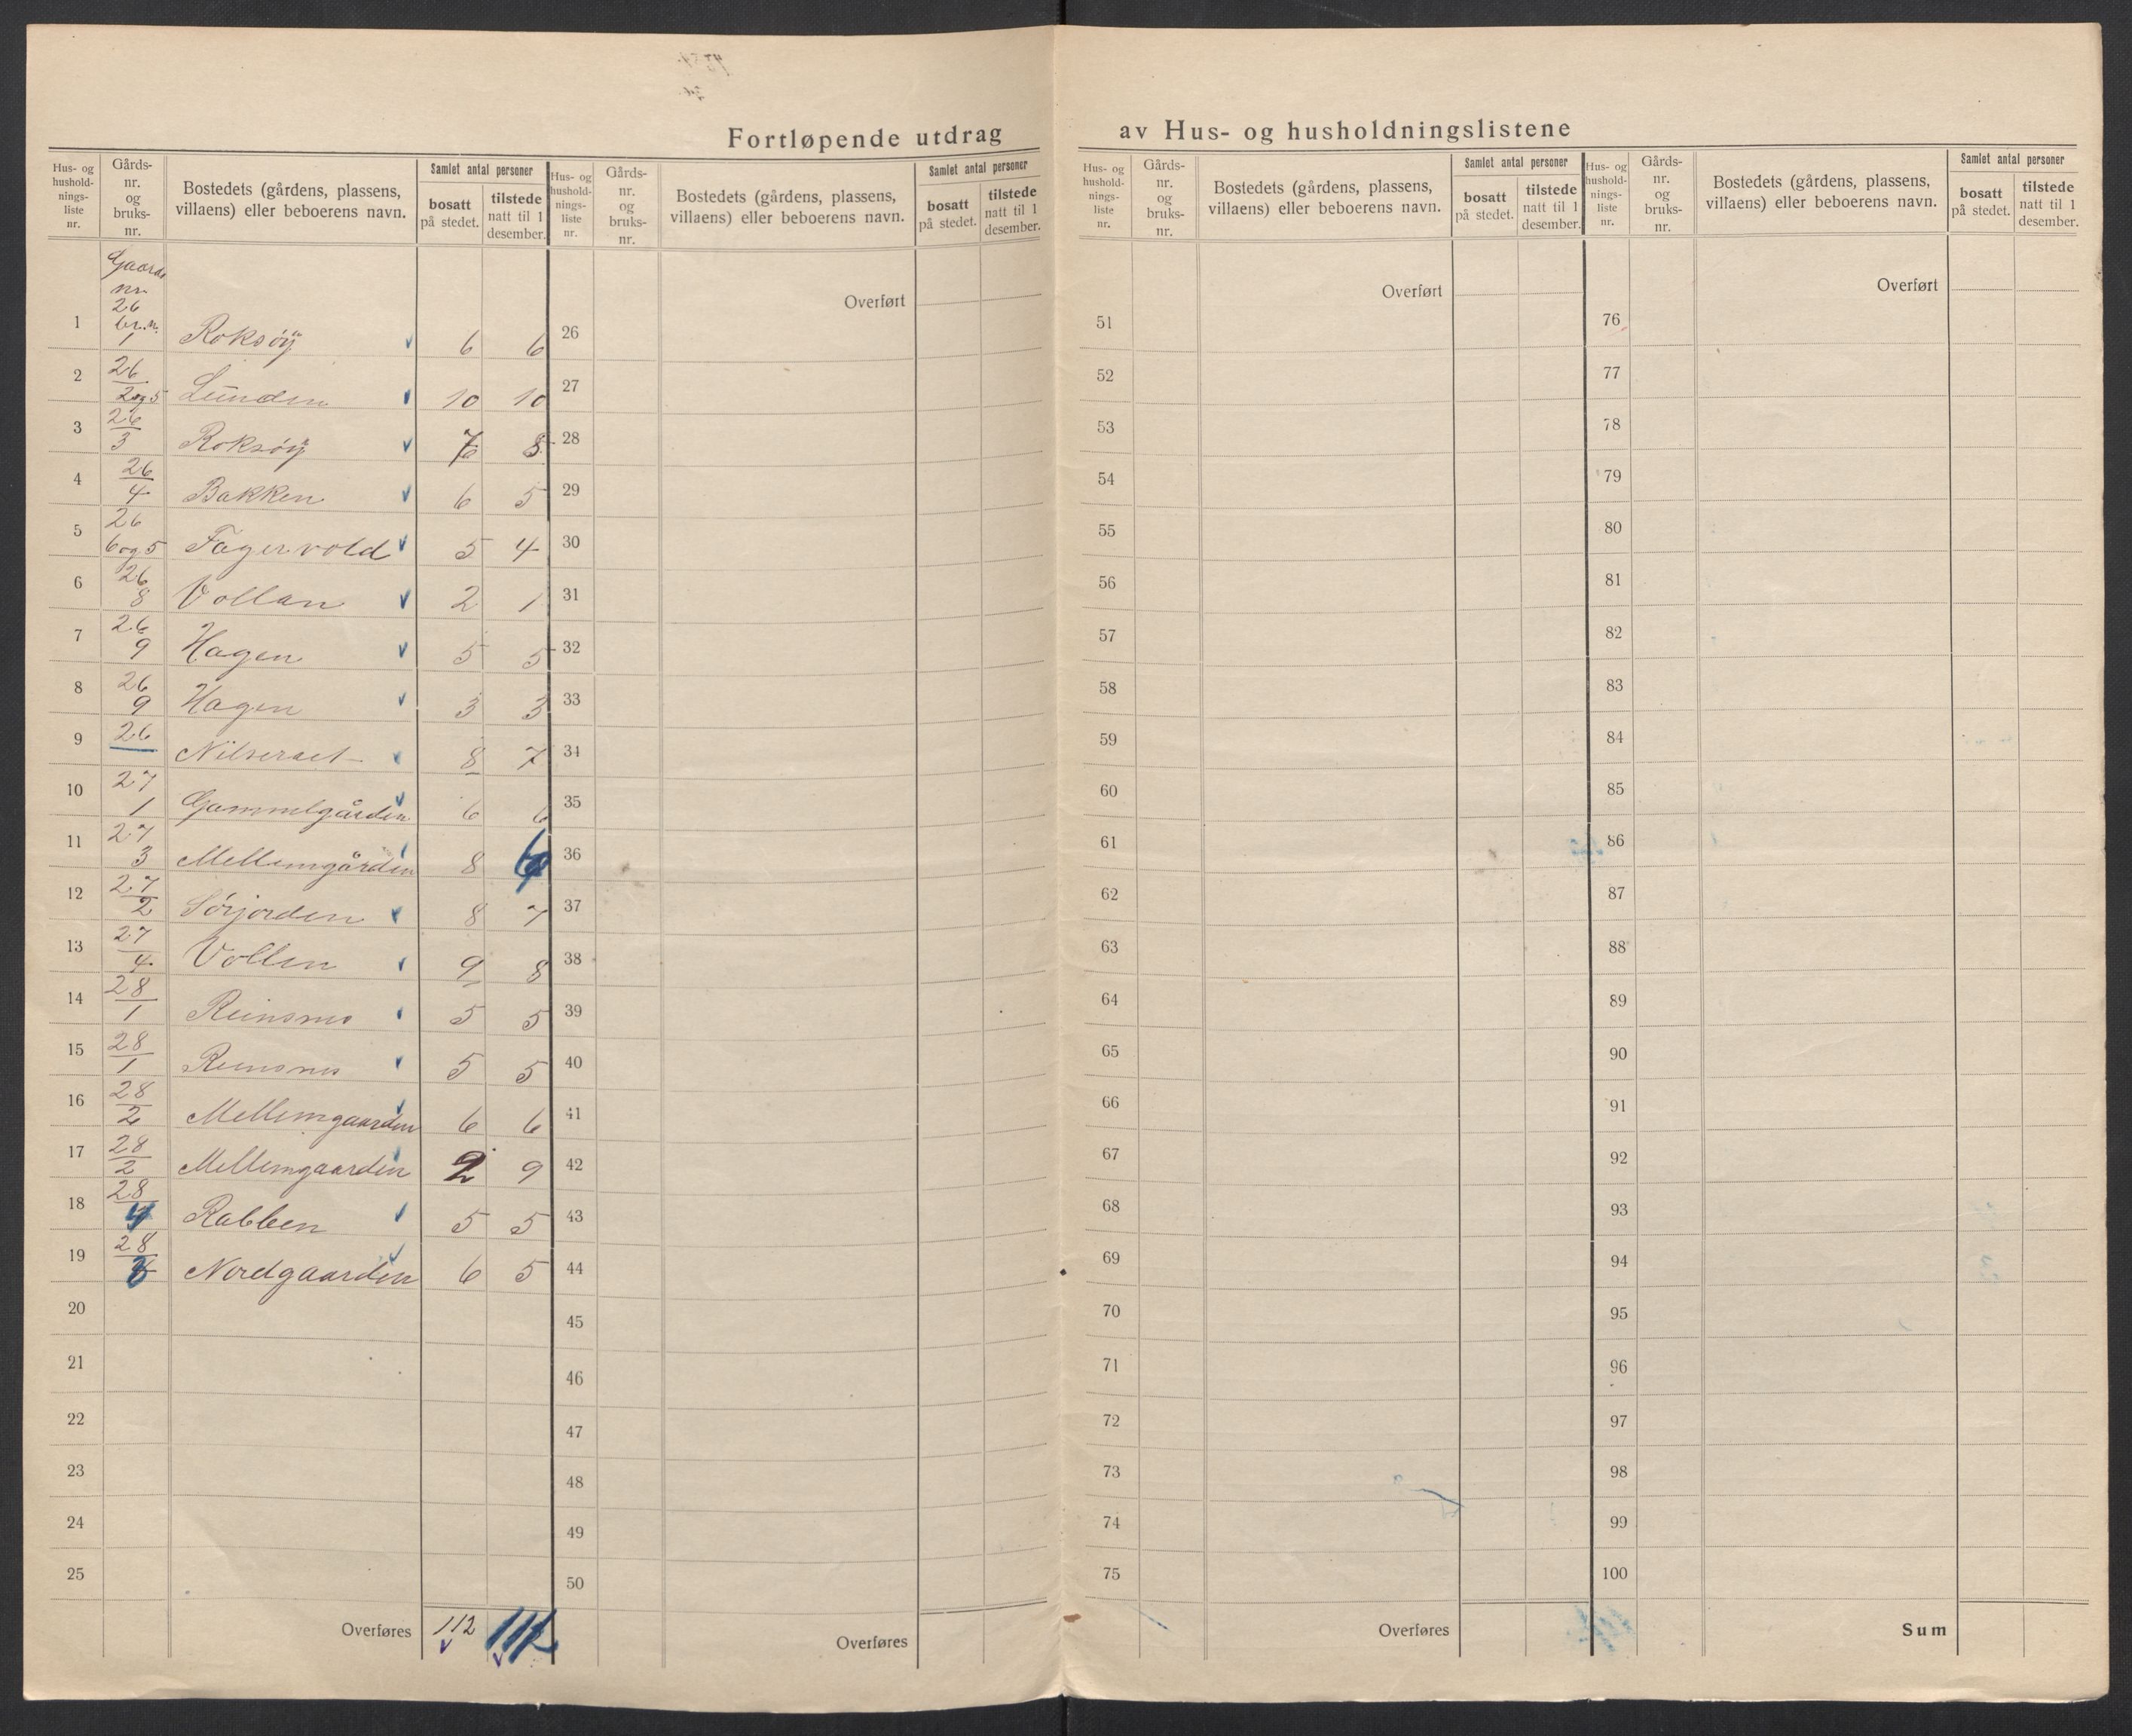 Fortløpende utdrag av Hus- og husholdningslistene
Hus- og hushold-nings-liste nr. Gårds-nr. og bruks-nr. Bostedets (gårdens, plassens, villaens) eller beboerens navn. Samlet antal personer bosatt på stedet. tilstede natt til 1 desember.
Hus- og hushold-nings-liste nr. Gårds-nr. og bruks-nr. Bostedets (gårdens, plassens, villaens) eller beboerens navn. Samlet antal personer bosatt på stedet. tilstede natt til 1 desember.
Hus- og hushold-nings-liste nr. Gårds-nr. og bruks-nr. Bostedets (gårdens, plassens, villaens) eller beboerens navn. Samlet antal personer bosatt på stedet. tilstede natt til 1 desember.
Hus- og hushold-nings-liste nr. Gårds-nr. og bruks-nr. Bostedets (gårdens, plassens, villaens) eller beboerens navn. Samlet antal personer bosatt på stedet. tilstede natt til 1 desember.
Gaards nr.
1 26 br.n. 1 Roksöy 6 6
2 26 2og5 Lunden 10 10
3 26 3 Roksöy 7 8
4 26 4 Bakken 6 5
5 26 6og5 Fagervold 5 4
6 26 8 Vollan 2 1
7 26 9 Hagen 5 5
8 26 9 Hagen 3 3
9 26 8 7
10 27 1 Gammelgården 6 6
11 27 3 Mellemgården 8
12 27 2 Sörjorden 8 7
13 27 4 Vollen 9 8
14 28 1 Reinsnes 5 5
15 28 1 Reinsnes 5 5
16 28 2 Mellemgaarden 6 6
17 28 2 Mellemgaarden 2 9
18 28 4 Rabben 5 5
19 28 3 Nordgaarden 6 5
20
21
22
23
24
25
Overføres 112
Overført
26
27
28
29
30
31
32
33
34
35
36
37
38
39
40
41
42
43
44
45
46
47
48
49
50
Overføres
Overført
51
52
53
54
55
56
57
58
59
60
61
62
63
64
65
66
67
68
69
70
71
72
73
74
75
Overføres
Overført
76
77
78
79
80
81
82
83
84
85
86
87
88
89
90
91
92
93
94
95
96
97
98
99
100
Sum